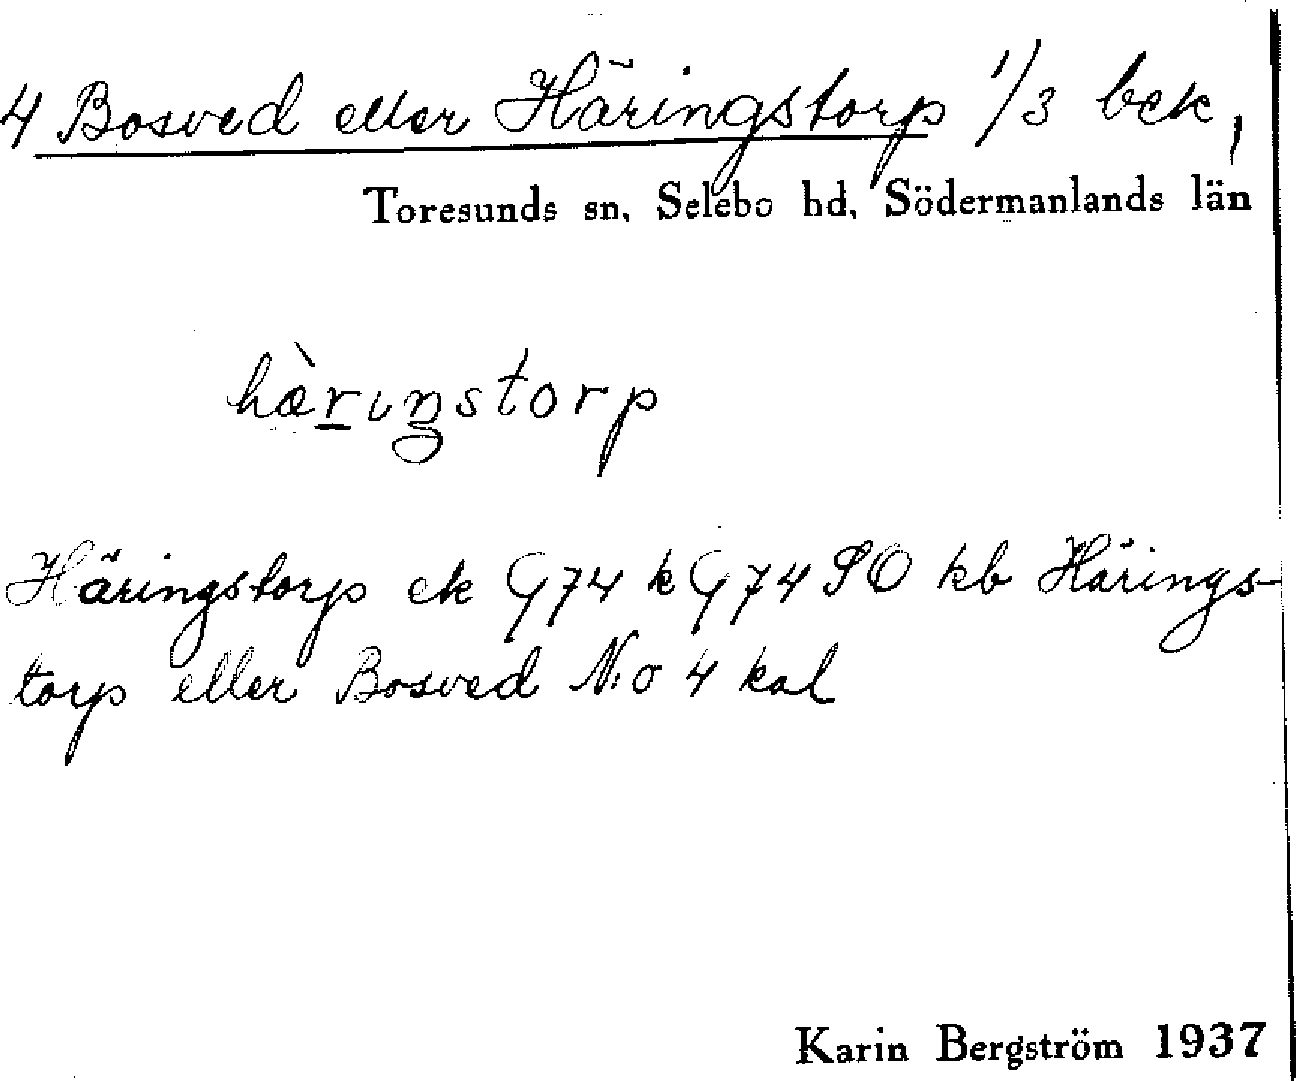 4 Bosved eller Häringstorp 1/3 bek,
Toresunds sn, Selebo hd, Södermanlands län
hæ̀rıŋstorp
Häringstorp ek G 74 k G 74 SO kb Härings-
torp eller Bosved N:o 4 kal
Karin Bergström 1937